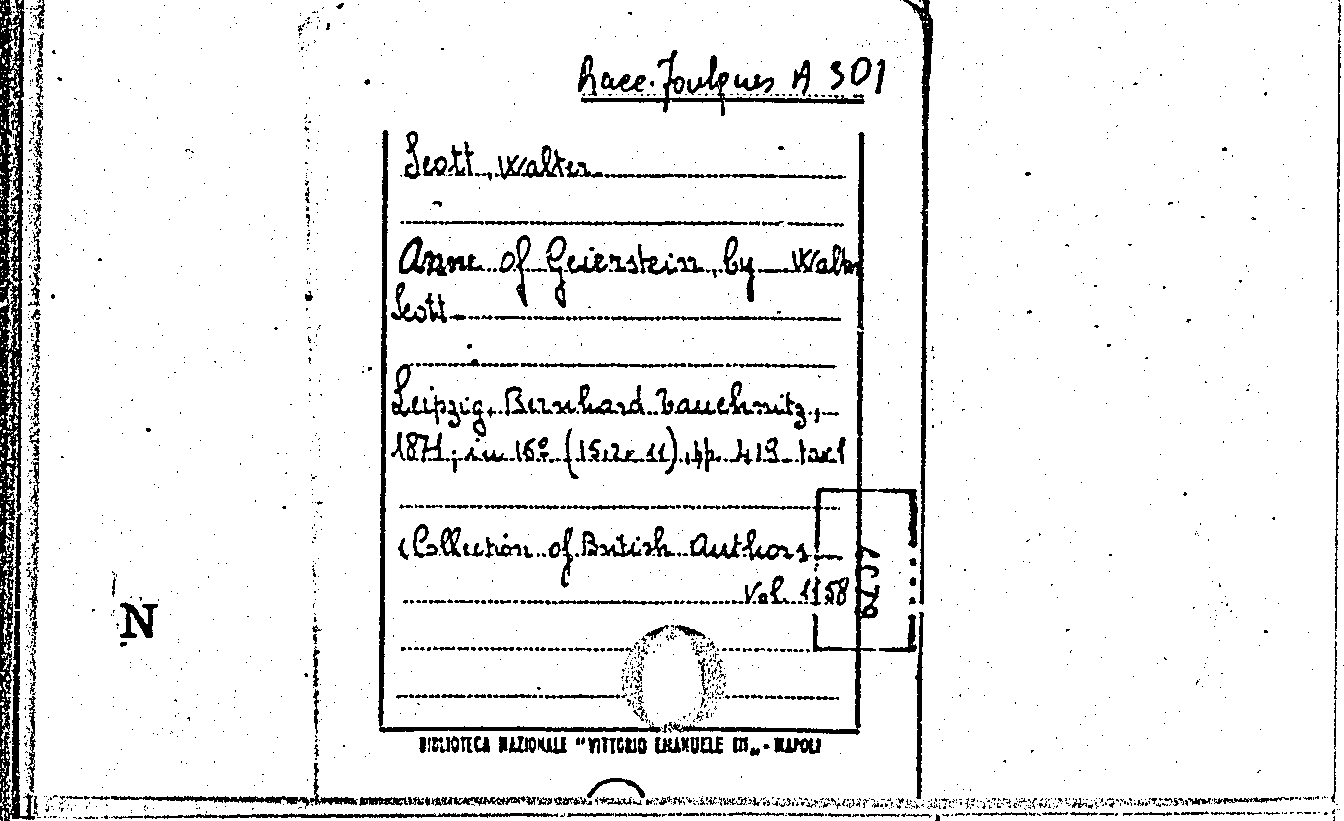 Racc. Foulques A 301
Scott, Walter
Anne of Geierstein, by Walter
Scott
Leipzig, Bernhard Tauchnitz,
1871; in 16º (15,2x11), pp. 419
(Collection of British Authors
Vol. 1158
N
BIBLIOTECA NAZIONALE "VITTORIO EMANUELE III" - NAPOLI